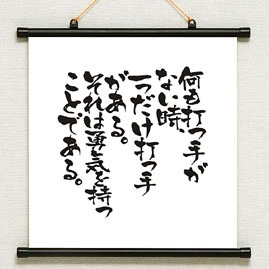 何も打つ手が
ない時、
一つだけ打つ手
がある。
それは勇気を持つ
ことである。